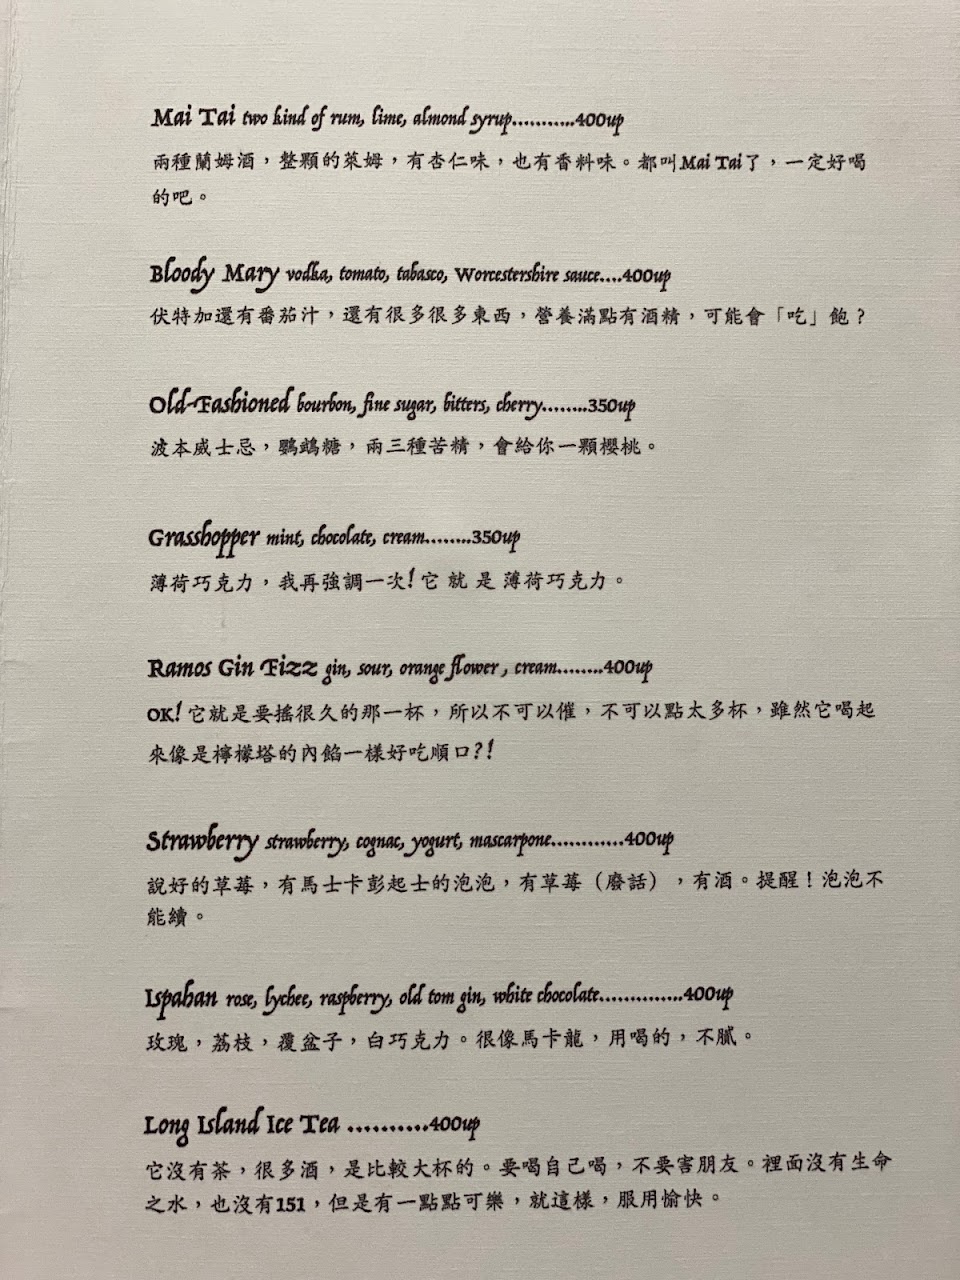 Mai Tai two kind of rum, lime, almond syrup...........400up
兩種蘭姆酒，整顆的萊姆，有杏仁味，也有香料味。都叫Mai Tai了，一定好喝
的吧。
Bloody Mary vodka, tomato, tabasco, Worcestershire sauce....400up
伏特加還有番茄汁，還有很多很多東西，營養滿點有酒精，可能會「吃」飽？
Old-Fashioned bourbon, fine sugar, bitters, cherry........350up
波本威士忌，鸚鵡糖，兩三種苦精，會給你一顆櫻桃。
Grasshopper mint, chocolate, cream........350up
薄荷巧克力，我再強調一次! 它 就 是 薄荷巧克力。
Ramos Gin Fizz gin, sour, orange flower , cream........400up
OK! 它就是要搖很久的那一杯，所以不可以催，不可以點太多杯，雖然它喝起
來像是檸檬塔的內餡一樣好吃順口?!
Strawberry strawberry, cognac, yogurt, mascarpone............400up
說好的草莓，有馬士卡彭起士的泡泡，有草莓（廢話），有酒。提醒！泡泡不
能續。
Ispahan rose, lychee, raspberry, old tom gin, white chocolate..............400up
玫瑰，荔枝，覆盆子，白巧克力。很像馬卡龍，用喝的，不膩。
Long Island Ice Tea ..........400up
它沒有茶，很多酒，是比較大杯的。要喝自己喝，不要害朋友。裡面沒有生命
之水，也沒有151，但是有一點點可樂，就這樣，服用愉快。